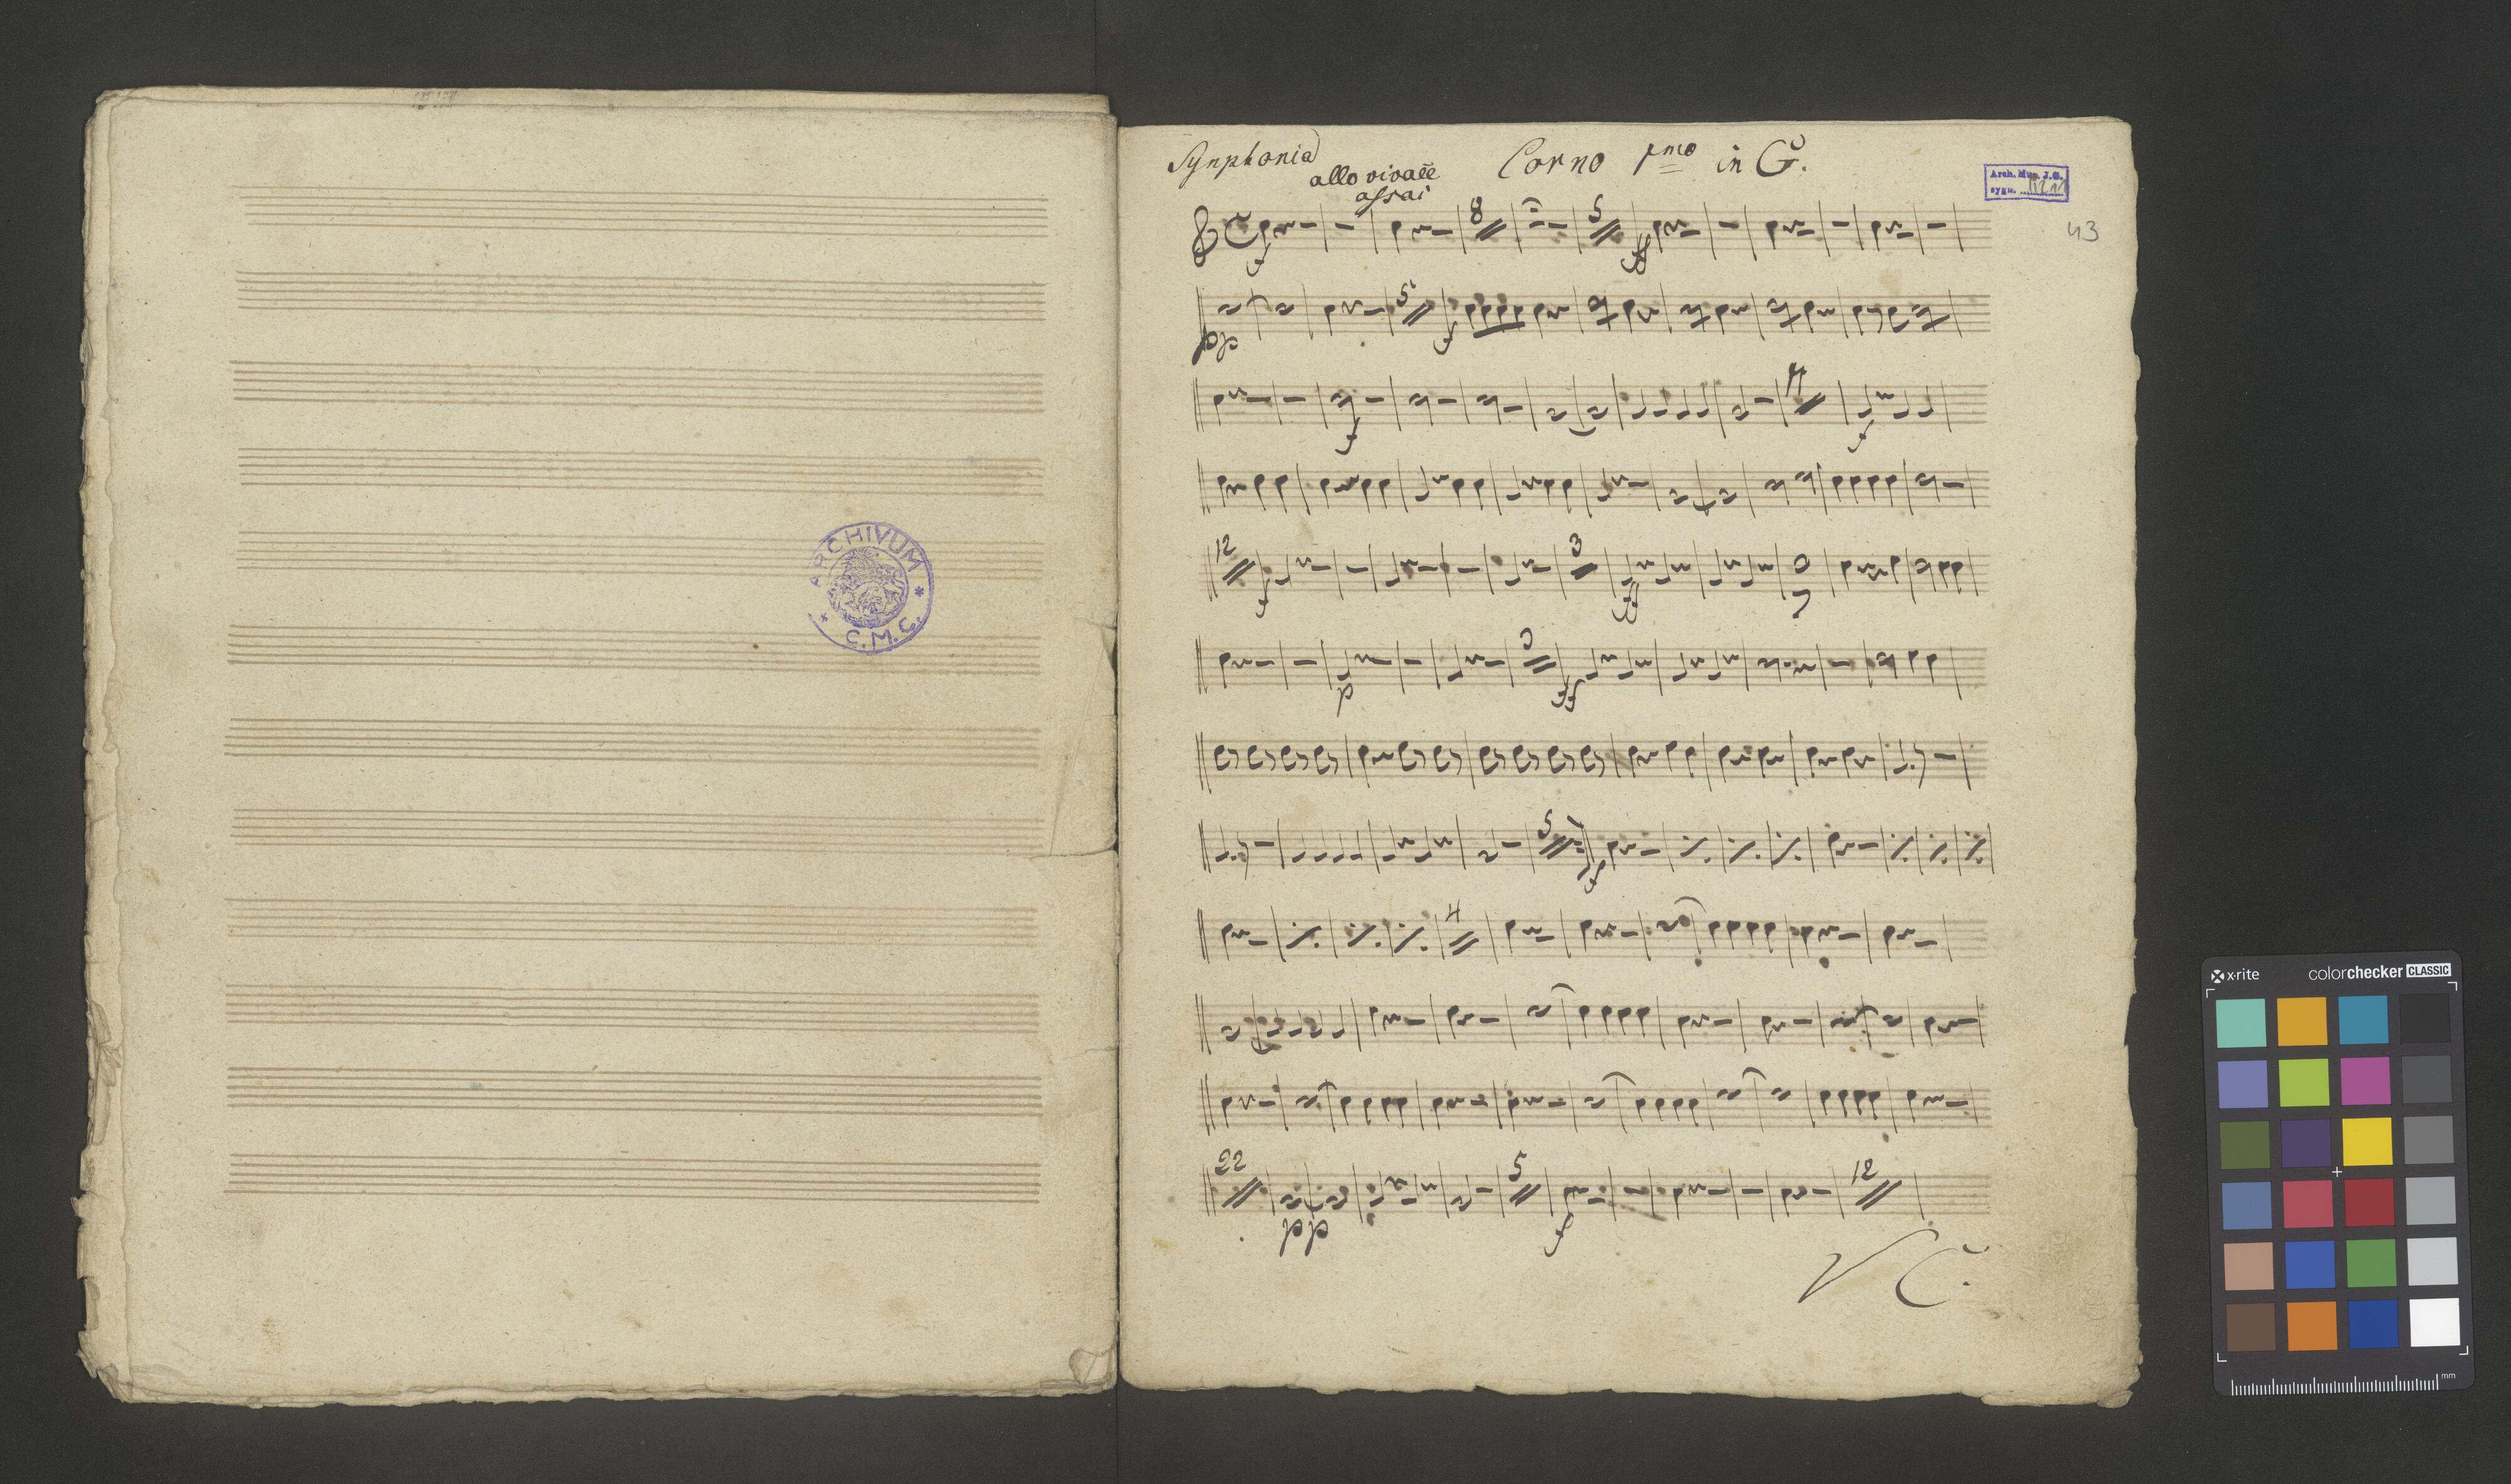 Synphonia
Corno pmo in G.
allo vivace
assai
Arch. Mus. J.G.
sygn.
43
8
5
f
ff
5
pp
f
4
f
f
12
3
f
ff
3
p
ff
5
f
4
22
5
12
pp
f
ARCHIVUM * C.M.C. *
x-rite
colorchecker CLASSIC
mm